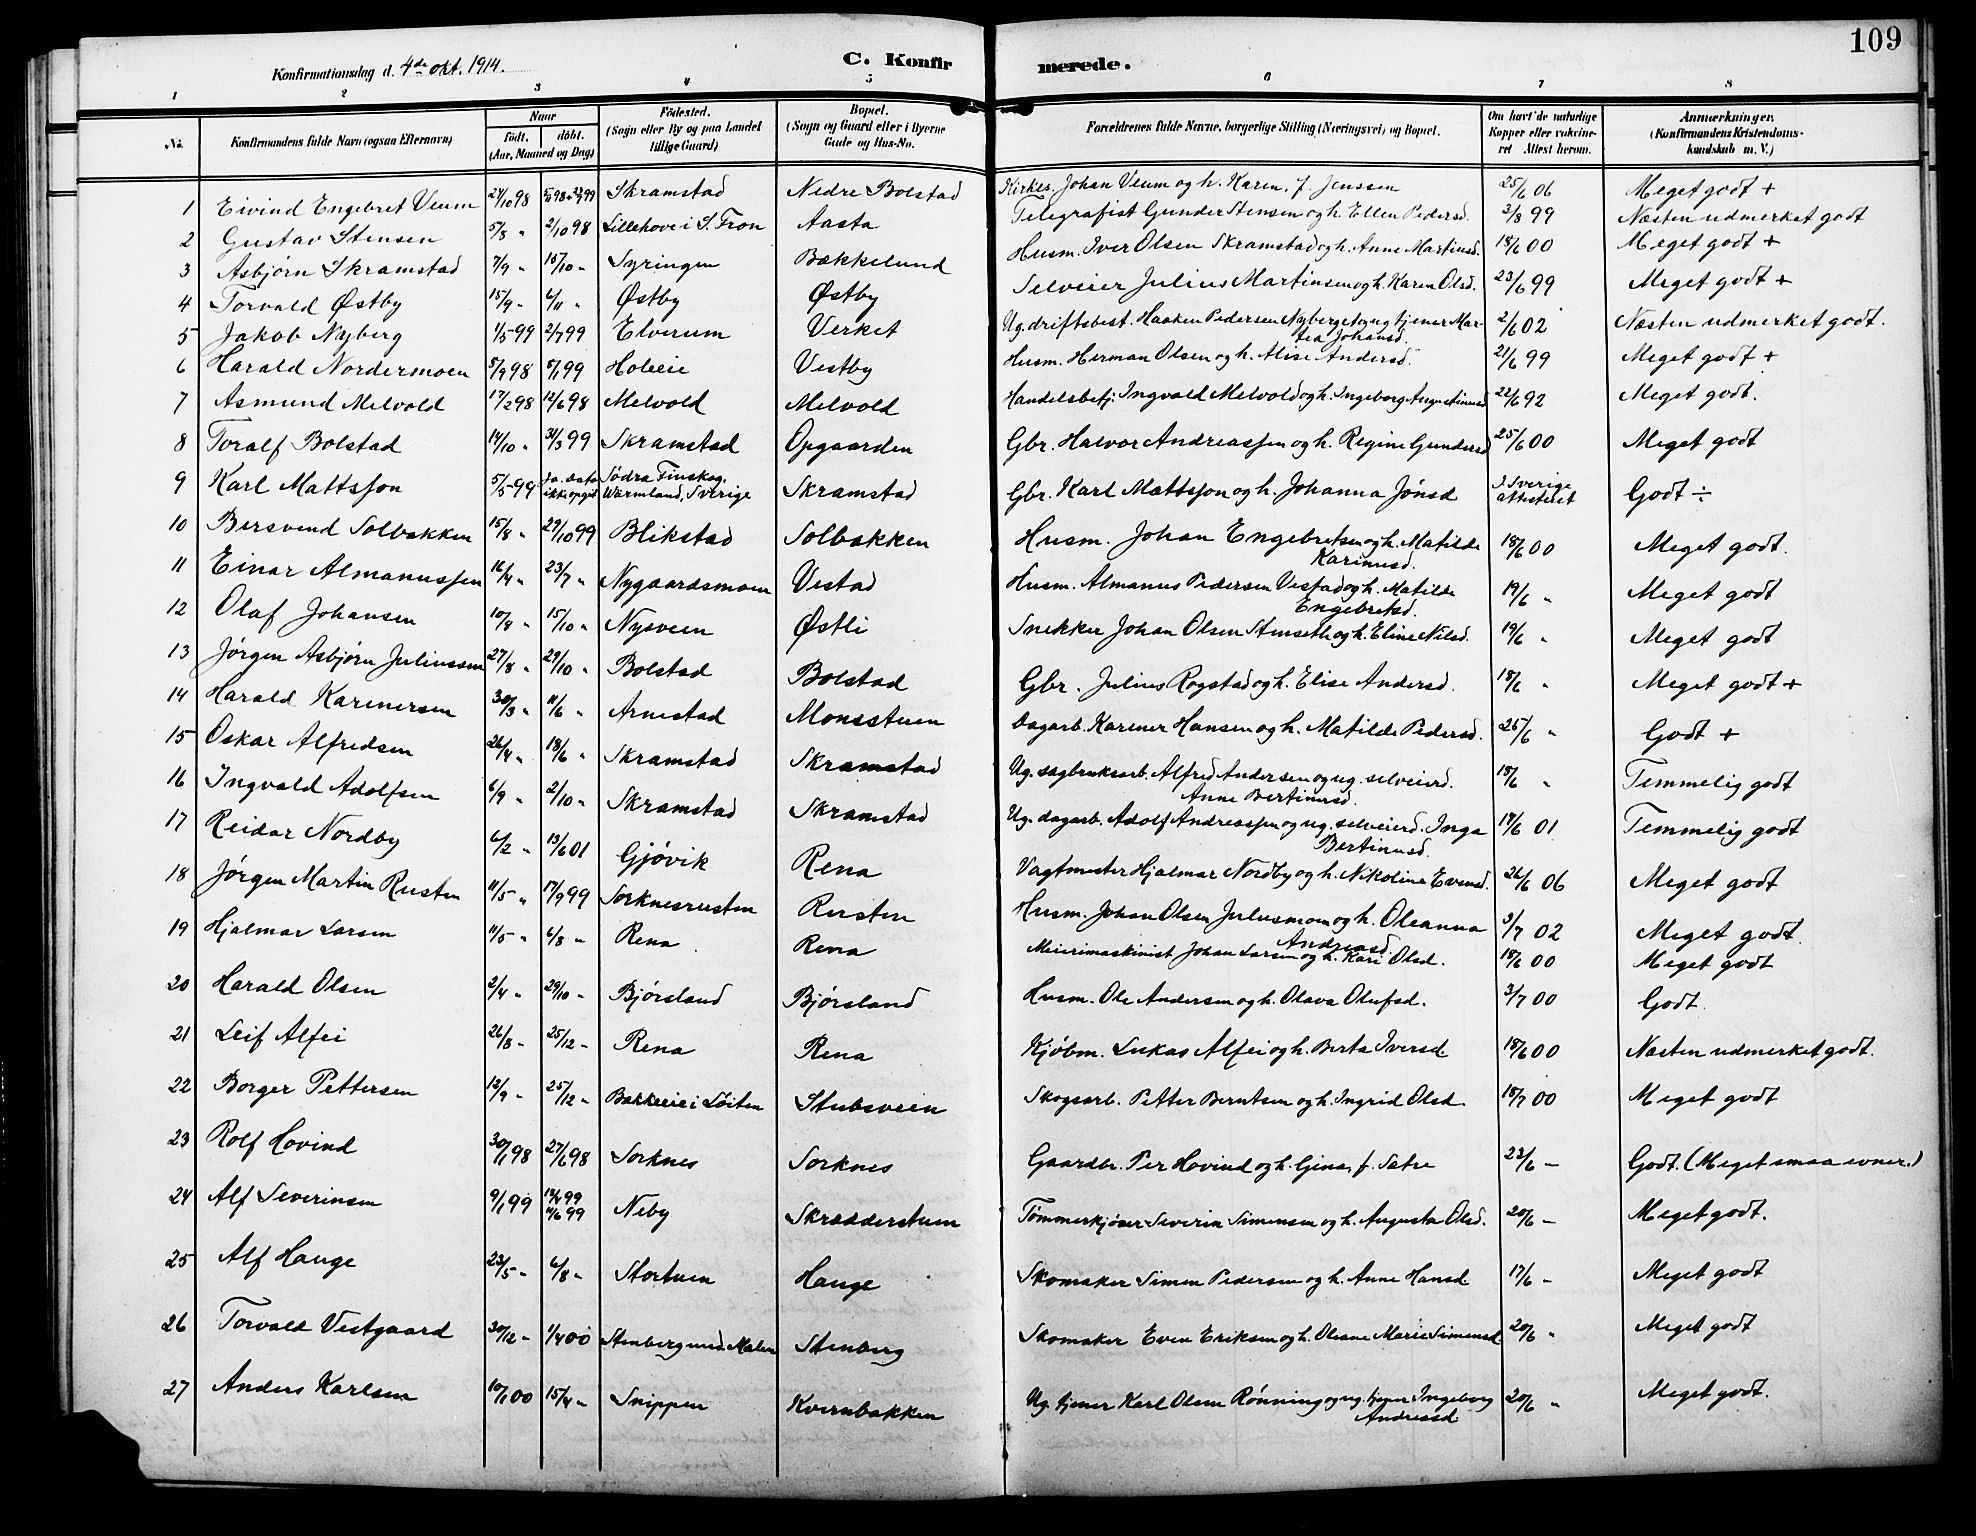 109
Konfirmationsdag d. 4de okt. 1914. C. Konfirmerede.
1 2 3 4 5 6 7 8
No. Konfirmandens fulde Navn (ogsaa Efternavn) Naar født. døbt. (Aar, Maaned og Dag) Fødested. (Sogn eller By og paa Landet tillige Gaard) Bopæl. (Sogn og Gaard eller i Byerne Gade og Hus-No. Forældrenes fulde Navne, borgerlige Stilling (Næringsvei) og Bopæl. Om havt de naturlige Kopper eller vakcineret Attest herom. Anmærkninger. (Konfirmandens Kristendomskundskab m. V.)
1 Eivind Engebret Veum 24/10 98 Skramstad Nedre Bolstad Kirkes. Johan Veum og h. Karen, f. Jenssen 25/6 06 Meget godt +
2 Gustav Stensen 5/8 " 2/10 98 Lillehove i S. Fron Aasta Telegrafist Gunder Stensen og h. Ellen Pedersd. 3/8 99 Næsten udmerket godt
3 Asbjørn Skramstad 7/9 " 15/10 " Syringen Bækkelund Husm. Iver Olsen Skramstad og h. Anne Martinsd. 18/6 00 Meget godt +
4 Torvald Østby 15/9 " 6/11 " Østby Østby Selveier Julius Martinsen og h. Karen Olsd. 23/6 99 Meget godt +
5 Jakob Nyberg 1/5 99 2/7 99 Elverum Verket Ug. driftsbest. Haaken Pedersen Nyberget og ug tjener Martea Johansd. 2/6 02 Næsten udmerket godt.
6 Harald Nordermoen 5/9 98 8/1 99 Holeeie Vestby Husm. Herman Olsen og h. Alise Andersd. 21/6 99 Meget godt +
7 Asmund Melvold 17/2 98 12/6 98 Melvold Melvold Handelsbetj. Ingvald Melvold og h. Ingeborg Augustinusd 22/6 92 Meget godt.
8 Toralf Bolstad 14/10 " 31/3 99 Skramstad Opgaarden Gbr. Halvor Andreassen og h. Regine Gundersd 25/6 00 Meget godt
9 Karl Mattsson 5/5 99 Ja. dato ikke opgit Södra Finskog, Wärmland, Sverige Skramstad Gbr. Karl Mattsson og h. Johanna Jönsd I Sverige attesteret Godt ÷
10 Bersvend Solbakken 15/8 " 29/10 99 Blikstad Solbakken Husm. Johan Engebretsen og h. Matilde Karinusd. 18/6 00 Meget godt.
11 Einar Almanussen 16/4 " 23/7 " Nygaardsmoen Vestad Husm. Almanus Pedersen Vestad og h. Matilde Engebretsd. 19/6 " Meget godt
12 Olaf Johansen 10/8 " 15/10 " Nysveen Østli Snekker Johan Olsen Stenseth og h. Eline Nilsd. 19/6 " Meget godt
13 Jørgen Asbjørn Juliussen 27/8 " 29/10 " Bolstad Bolstad Gbr. Julius Rogstad og h. Elise Andersd. 18/6 " Meget godt +
14 Harald Karenersen 30/3 " 11/6 " Arnestad Monsstuen Dagarb. Karener Hansen og h. Matilde Pedersd. 25/6 " Godt +
15 Oskar Alfredsen 26/4 " 18/6 " Skramstad Skramstad Ug. sagbruksarb. Alfred Andersen og ug. selveierd. Anne Bertinusd. 18/6 " Temmelig godt
16 Ingvald Adolfsen 6/9 " 2/10 " Skramstad Skramstad Ug. dagarb. Adolf Andreassen og ug. selveierd. Inga Bertinusd. 19/6 01 Temmelig godt
17 Reidar Nordby 6/2 " 13/6 01 Gjøvik Rena Vagtmester Hjalmar Nordby og h. Nikoline Evensd. 26/6 06 Meget godt
18 Jørgen Martin Rusten 11/5 " 17/9 99 Sorknesrusten Rusten Husm. Johan Olsen Julusmoen og h. Oleanna Andreasd 3/7 02 Meget godt.
19 Hjalmar Larsen 11/5 " 6/8 " Rena Rena Meierimaskinist Johan Larsen og h. Kari Olsd. 18/6 00 Meget godt
20 Harald Olsen 2/4 " 29/10 " Bjørsland Bjørsland Husm. Ole Andersen og h. Olava Olufsd. 3/7 00 Godt.
21 Leif Alfei 26/8 " 25/12 " Rena Rena Kjøbm. Lukas Alfei og h. Berta Iversd 18/6 00 Næsten udmerket godt.
22 Borger Pettersen 12/9 " 25/12 " Bakkeeie i Löiten Stubsveen Skogsarb. Petter Berntsen og h. Ingrid Olsd. 18/7 00 Meget godt
23 Rolf Hovind 30/1 98 27/6 98 Sorknes Sorknes Gaardbr. Per Hovind og h. Gina, f. Sætre 23/6 - Godt. (Meget smaa evner.)
24 Alf Severinsen 9/1 99 11/6 99 Neby Skrædderstuen Tømmerkjører Severin Simensen og h. Augusta Olsd. 20/6 - Meget godt.
25 Alf Hauge 23/5 " 6/8 " Stortuen Hauge Skomaker Simen Pedersen og h. Anne Hansd 17/6 - Meget godt
26 Torvald Vestgaard 30/12 " 1/4 00 Stenberg Stenberg Skomaker Even Eriksen og h. Oleane Marie Simensd. 20/6 " Meget godt
27 Anders Karlsen 10/1 00 15/4 " Snippen Kvernbakken Ug. tjener Karl Olsen Rønning og ug. tjener Ingeborg Andreasd 20/6 " Meget godt.